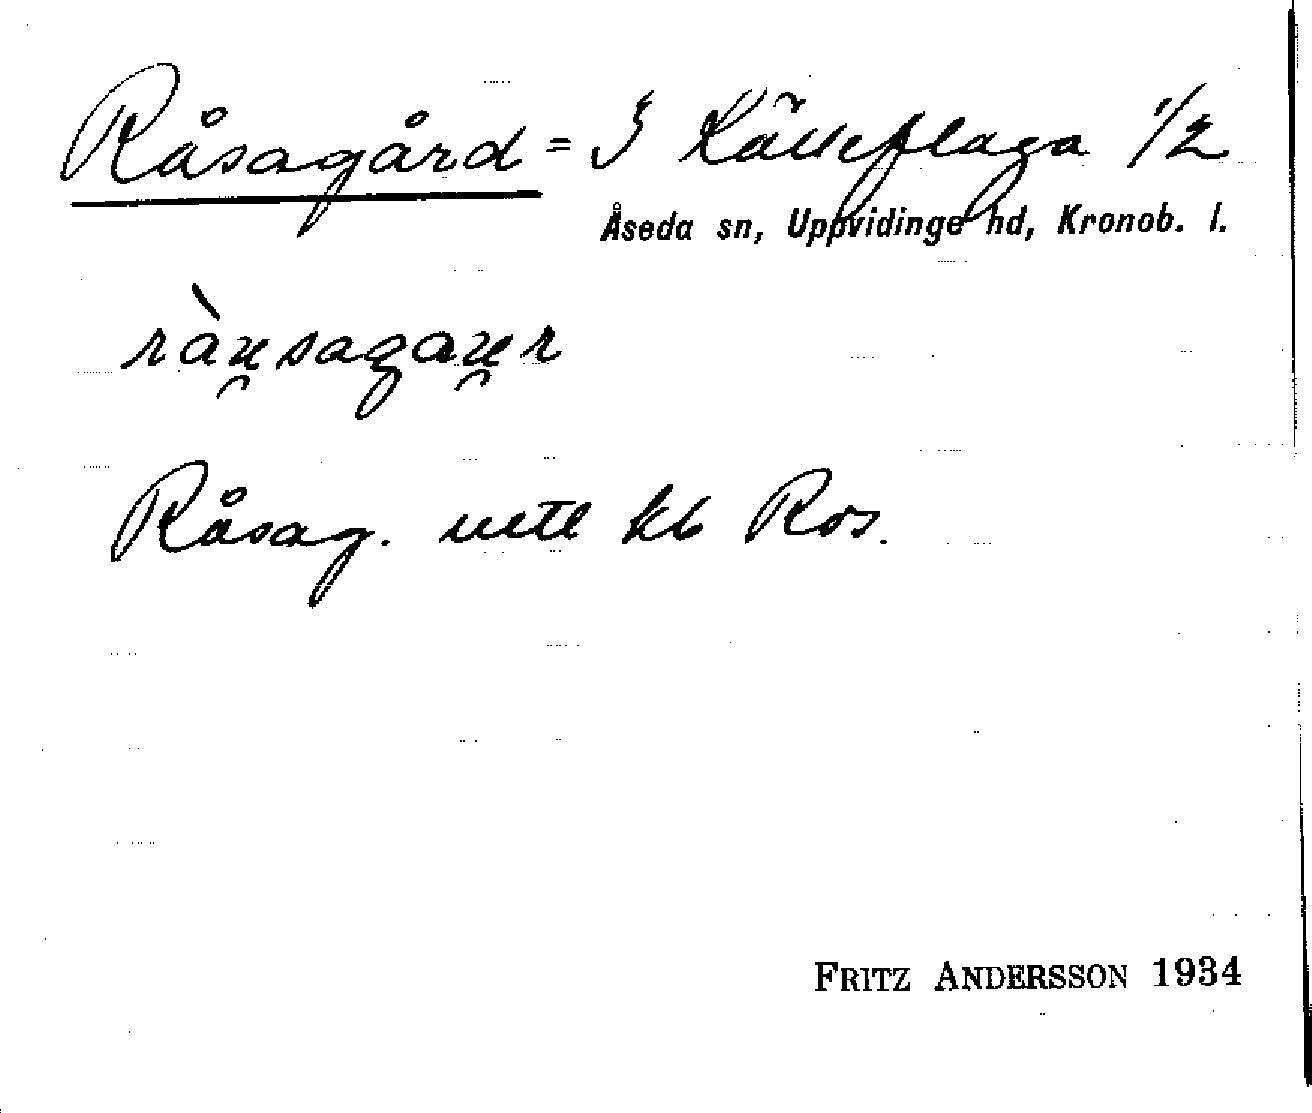 Råsagård = I Källeflaga 1/2
Åseda sn, Uppvidinge hd, Kronob. l.
ràu̯sagau̯r
Råsag. uttl kb Ros.
FRITZ ANDERSSON 1934